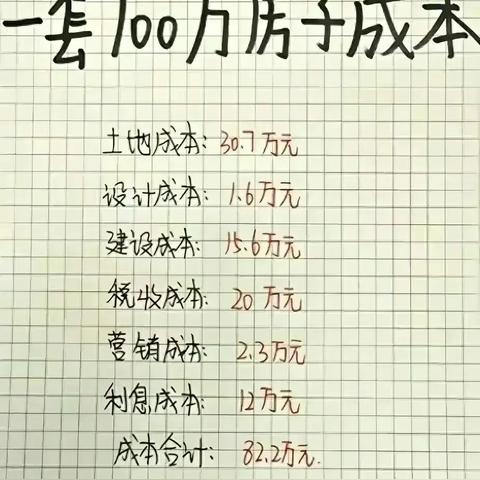 一套100万房子成本
土地成本：30.7万元
设计成本：1.6万元
建设成本：15.6万元
税收成本：20万元
营销成本：2.3万元
利息成本：12万元
成本合计：82.2万元.